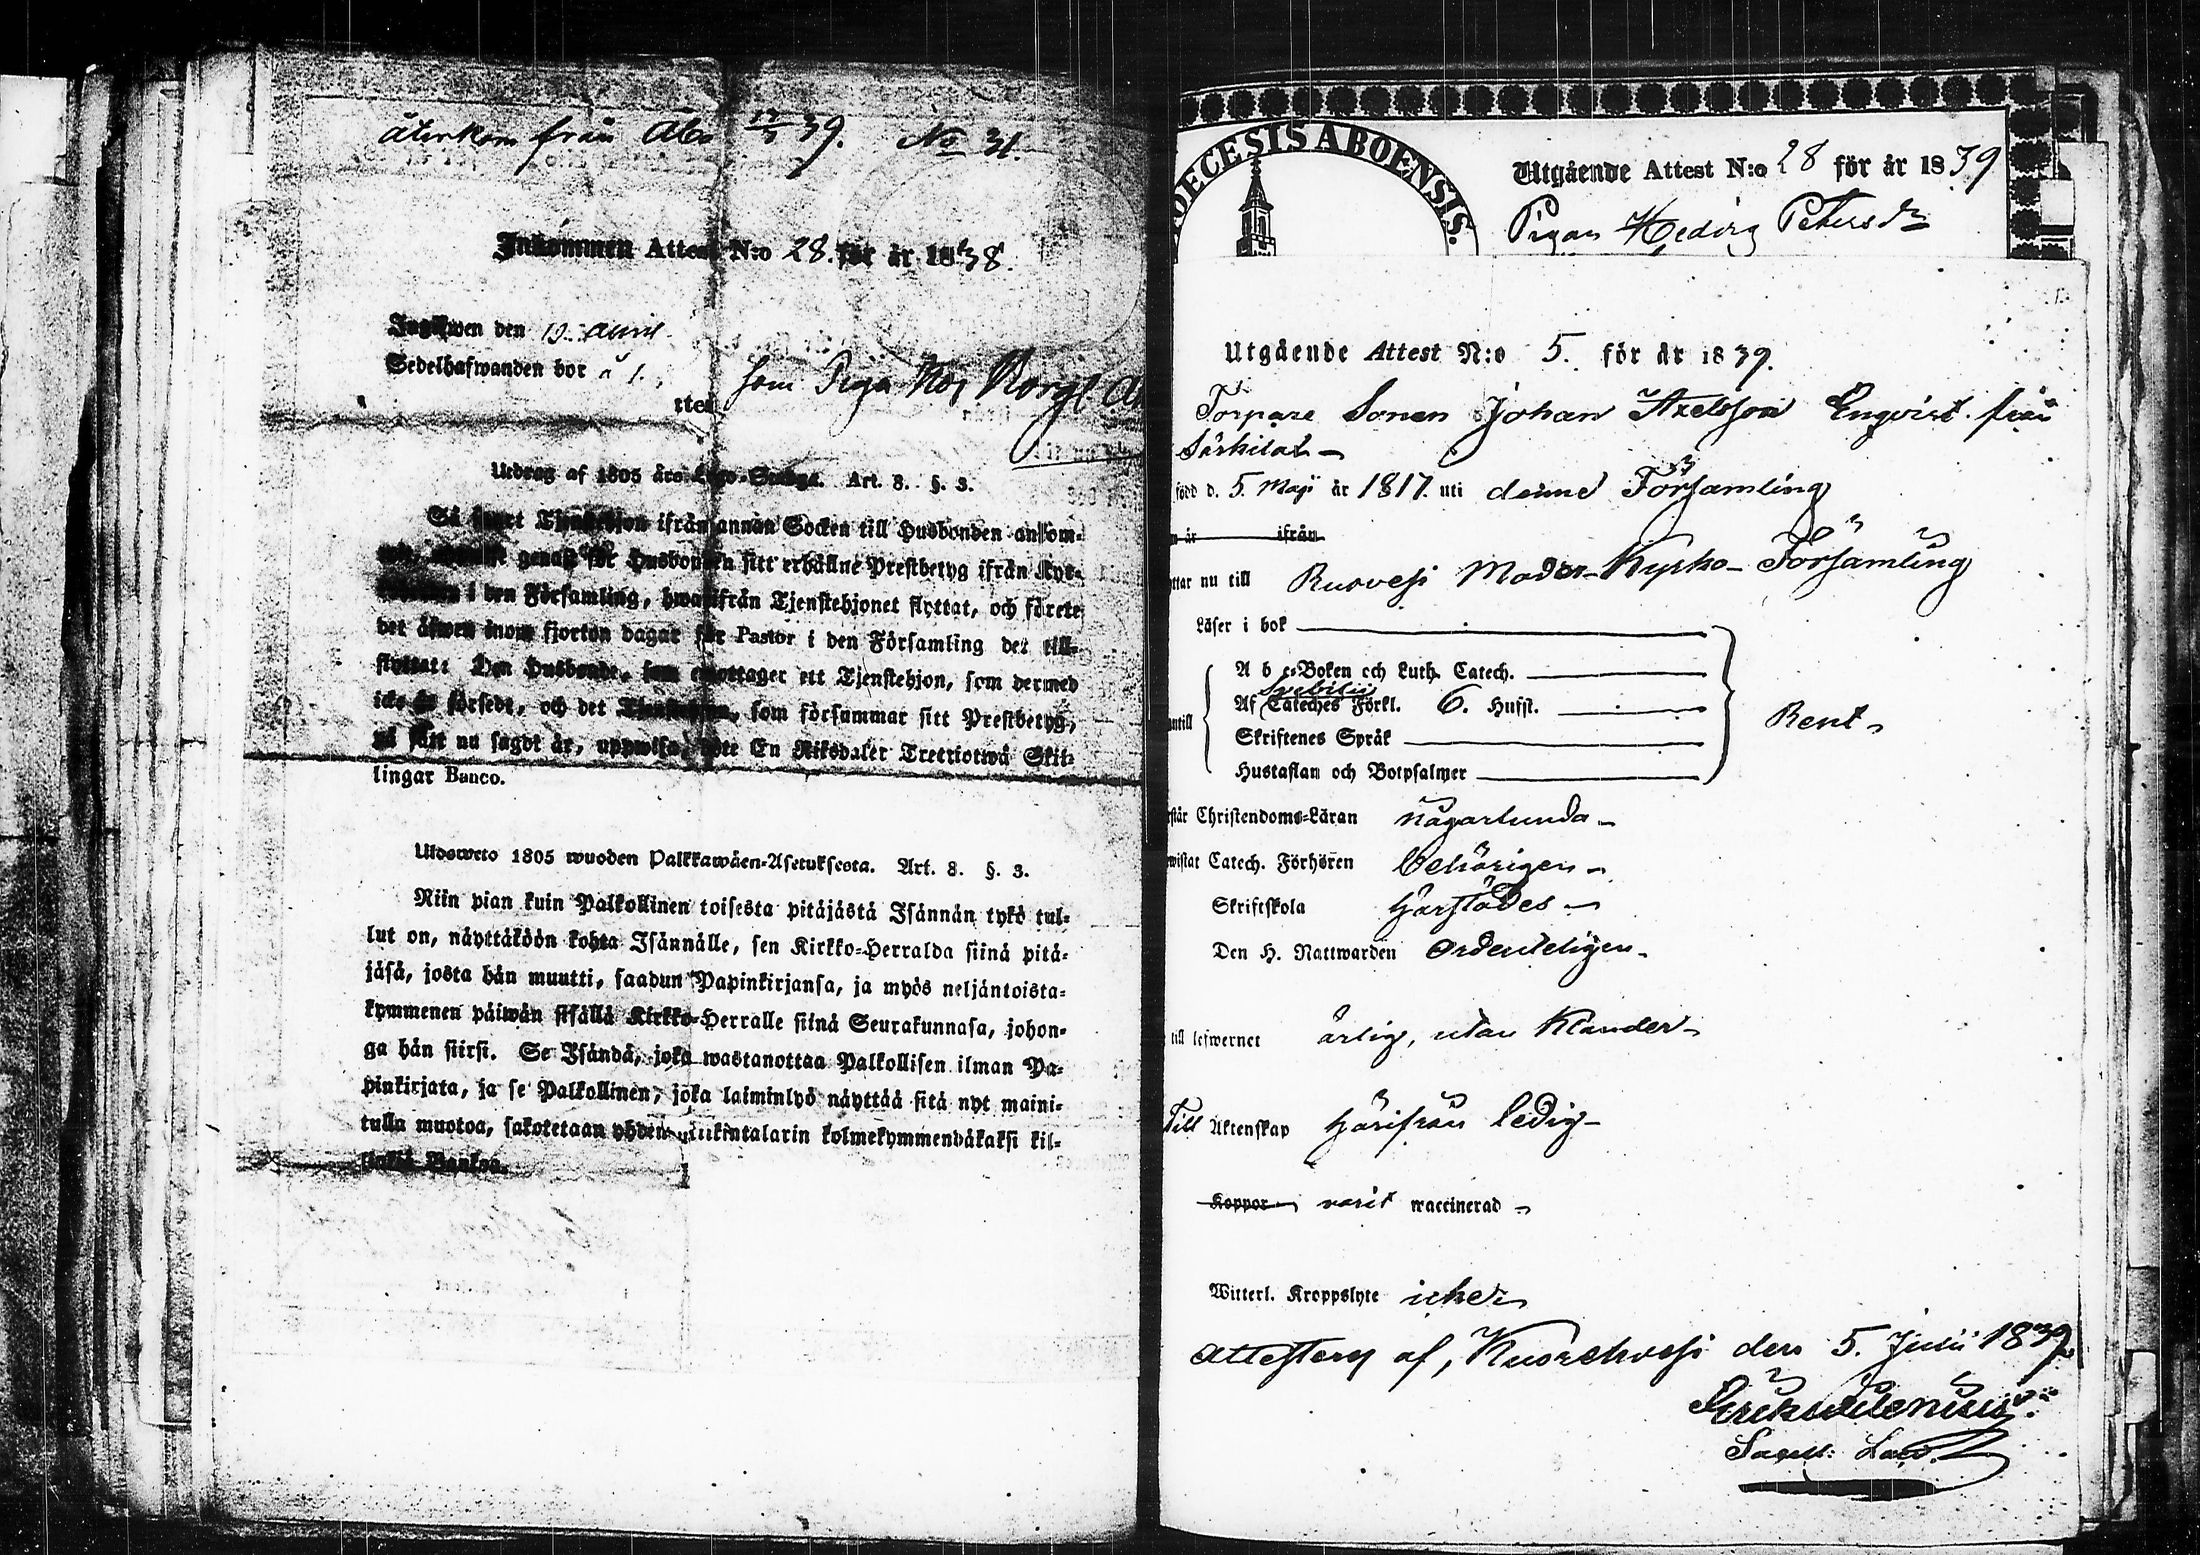 återkom från Åbo 39. No 31.
Inkommen Attest N:o 28. för år 1838.
Ingifwen den 19. April
Sedelhafwanden bor å
som Piga hos
Utdrag af 1805 års Lego-Stadga. Art. 8. §. 3.
Så snart Tjenstehjon ifrån annan Socken till Husbonden ankom-
genast för Husbonden sitt erhållne Prestbetyg ifrån Kyr-
i den Församling, hwarifrån Tjenstehjonet flyttat, och förete
det äfwen inom fjorton dagar för Pastor i den Församling det till-
flyttat: Den Husbonde, som emottager ett Tjenstehjon, som dermed
icke är försedt, och det Tjenstehjon, som försummar sitt Prestbetyg,
på sätt nu sagdt är, uppwisa, böte En Riksdaler Trettiotwå Skil-
lingar Banco.
Uldosweto 1805 wuoden Palkkawäen-Asetuksesta. Art. 8. §. 3.
Niin pian kuin Palkollinen toisesta pitäjästä Isännän tykö tul-
lut on, näyttäköön kohta Isännälle, sen Kirkko-Herralda siinä pitä-
jäsä, josta hän muutti, saadun Papinkirjansa, ja myös neljäntoista-
kymmenen päiwän sisällä Kirkko-Herralle siinä Seurakunnasa, johon-
ga hän siirsi. Se Isändä, joka wastanottaa Palkollisen ilman Pa-
pinkirjata, ja se Palkollinen, joka laiminlyö näyttää sitä nyt maini-
tulla muotoa, sakotetaan yhden Riikintalarin kolmekymmendäkaksi kil-
lingiä Bankoa.
DIOECESIS ABOENSIS.
Utgående Attest N:o 28 för år 1839
Pigan Hedvig Petersdr
Utgående Attest N:o 5. för år 1839.
Torpare Sonen Johan Axelsson Enqvist från
Särkilax
född d. 5. Maji år 1817. uti denne Församling
år ifrån
ttar nu till Ruovesi Moder-Kyrko-Församling
Läser i bok
A b c-Boken och Luth. Catech.
Svebilii
Af Cateches Förkl. 6. Hufst.
antill
Skriftenes Språk
Rent
Hustaflan och Botpsalmer
rstår Christendoms-Läran någorlunda
wistat Catech. Förhören behörigen
Skriftskola härstädes
Den H. Nattwarden Ordenteligen
till lefwernet ärlig, utan klander
Till Äktenskap härifrån ledig
Koppor varit waccinerad
Witterl. Kroppslyte icke
Attesterar af, Kuorehvesi den 5. Julii 1839